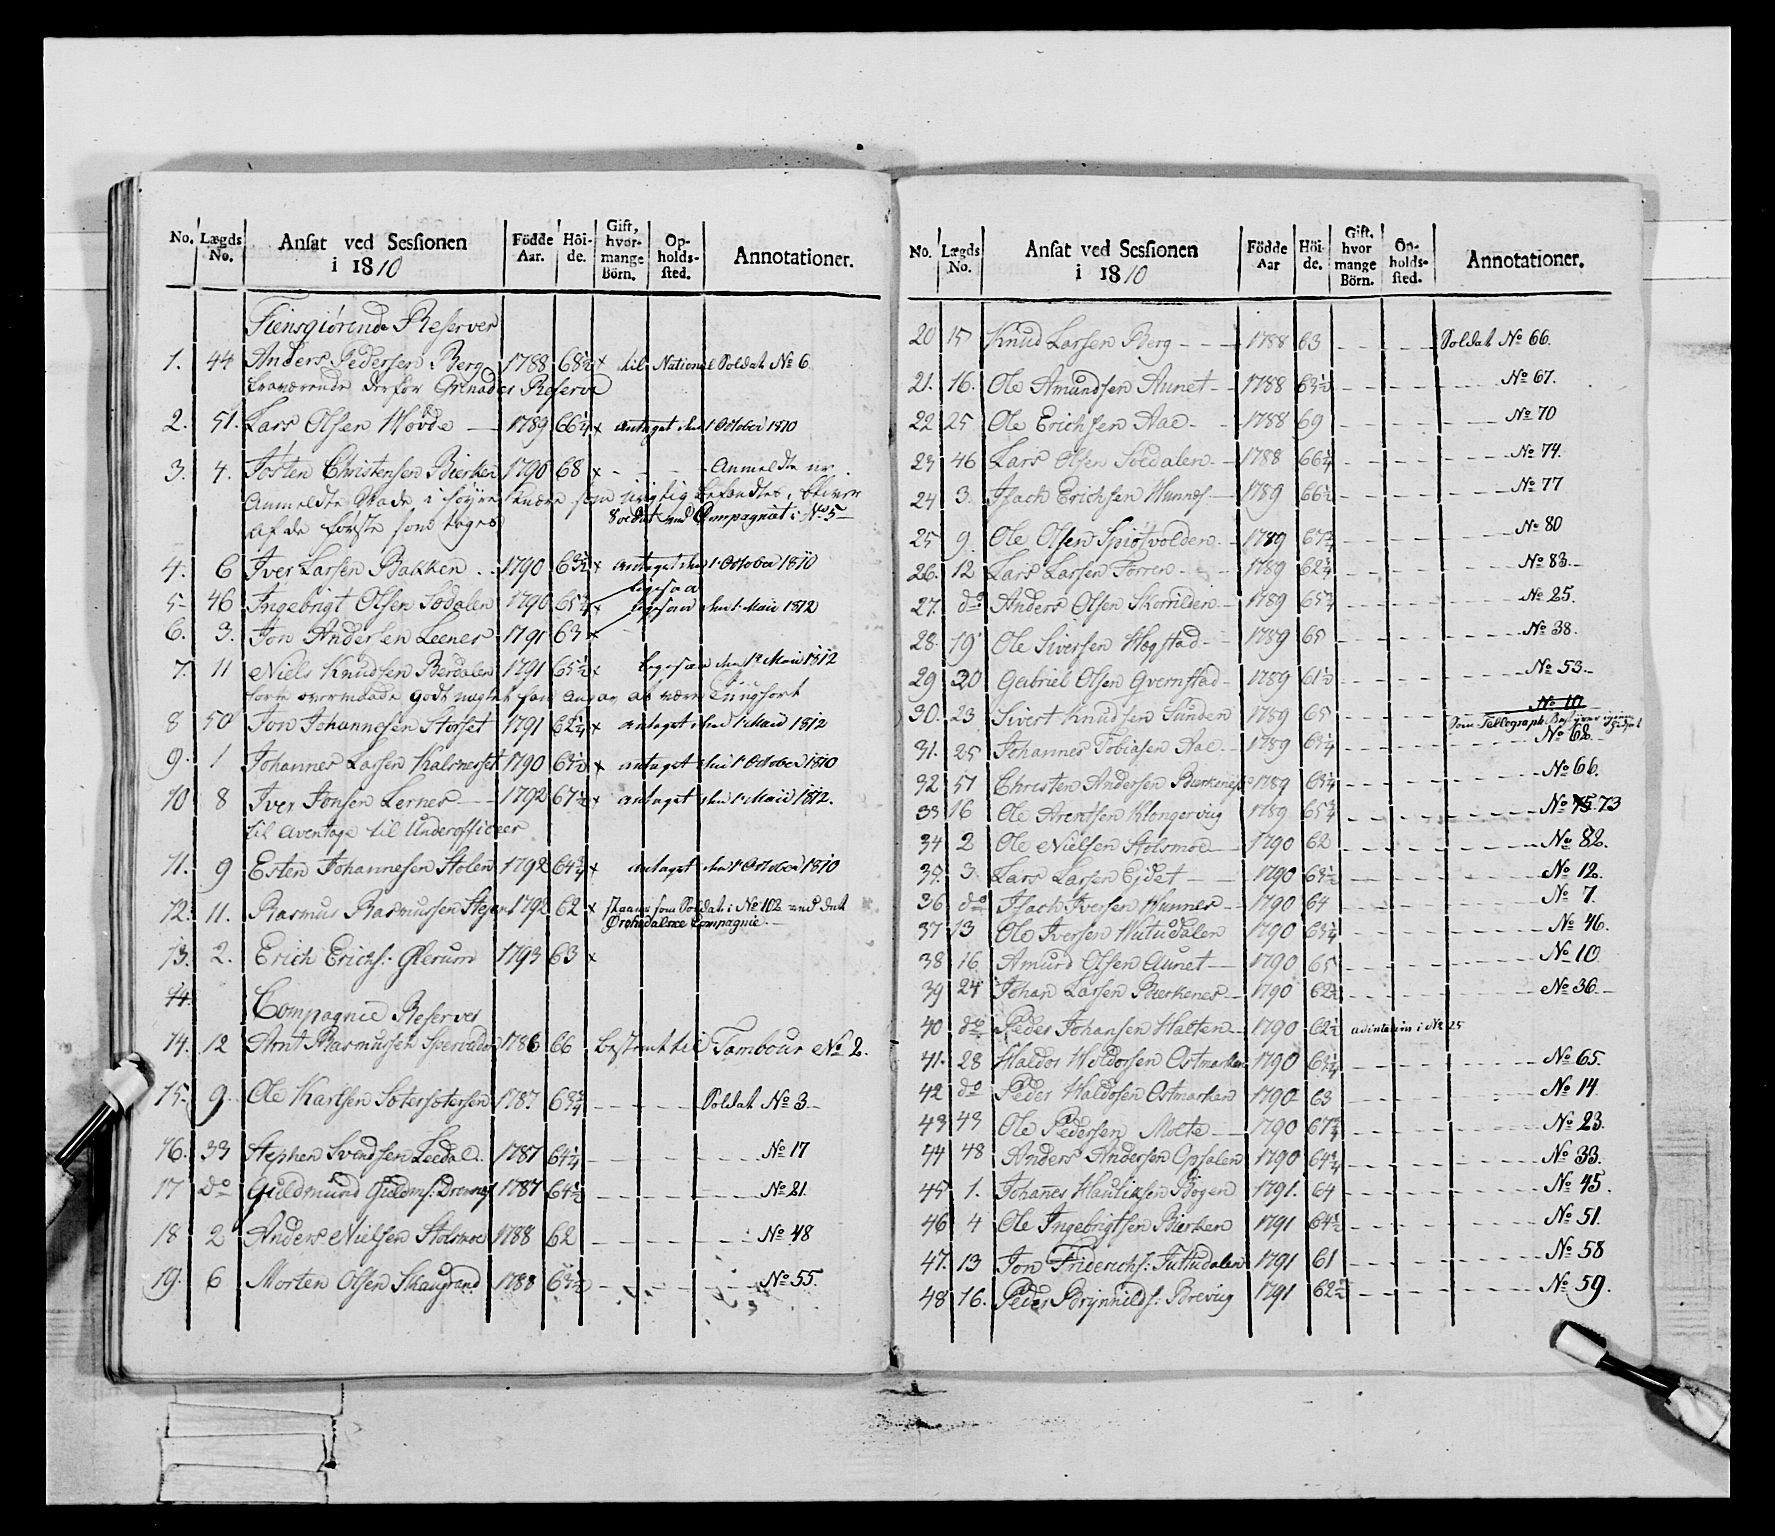 No. Lægds No. Ansat ved Sessionen i 1810 Födde Aar. Höide. Gift, hvormange Börn. Opholdssted. Annotationer.
Tienstgiörende Reserver
1. 44 Anders Pedersen Berg 1788 68½ x til National Soldat No 6
fraværende derfor Grenadeer Reserve
2. 51. Lars Olsen Hovde 1789 66¼ x antaget den 1 October 1810
3. 4. Josten Christensen Bierken 1790 68 x - - - Anmeldte nr.
Anmeldte Skade i høyre knæe som urigtig befandtes, bliver
af de første som tages Soldat ved Compagniet i No 5
4. 6 Iver Larsen Bakken 1790 63½ x antaget den 1 October 1810
ligesaa
5 46 Ingebrigt Olsen Sødalen 1790 65¾ x ligesaa den 1 Maii 1812
6. 3. Jon Andersen Leenes 1791 63 x
7. 11 Niels Knudsen Berdalen 1791 65½ x ligesaa den 1te Maii 1812
8 50 Jon Johannesen Storset 1791 62¼ x antaget den 1 Maii 1812
9. 1 Johannes Larsen Kalvneset 1790 63½ x antaget den 1 October 1810
10 8 Iver Jonsen Lernes 1792 67½ x antaget den 1 Maii 1812.
til aventage til Underofficeer
11. 9 Esten Johannesen Stolen 1792 64¾ x antaget den 1 October 1810
12. 11. Rasmus Rasmussen Stejen 1792 62 x staaer som Soldat i No 102 ved det
Ørchedalske Compagnie.
13. 2. Erich Erichs: Glerum 1793 63 x
14.
Compagnie Reserver
14. 12 Arnt Rasmussen 1786 66 bestemt til Tambour No 2.
15 9 Ole Karlsen Sætersetersen 1787 63¾ - - - Soldat No 3
16. 33 Stephen Svendsen Leedal 1787 64¼ - - - No 17
17 do Guldmund Guldms: 1787 64½ - - - No 21
18 2 Anders Nielsen Holsmoe 1788 62 - - - No 48
19. 6 Morten Olsen Skaugrand 1788 63½ - - - No 55.
No. Lægds No. Ansat ved Sessionen i 1810 Födde Aar Höide. Gift, hvor mange Börn. Opholdssted. Annotationer.
20 15 Knud Larsen Berg - - 1788 63 - - - Soldat No 66.
21. 16. Ole Amundsen Aunet 1788 63½ - - - No 67.
22 25 Ole Erichsen Aae 1788 69 - - - No 70
23 46 Lars Olsen Soedalen 1788 66¼ - - - No 74.
24 3. Isach Erichsen Hunnes 1789 66½ - - - No 77
25 9. Ole Olsen Spiøtvolden 1789 67¾ - - - No 80
26. 12 Lars Larsen Forren 1789 62¼ - - - No 83.
27. do Anders Olsen Skorrilden 1789 65¾ - - - No 25.
28. 19 Ole Siversen Hegstad 1789 65 - - - No 38.
29 20 Gabriel Olsen Qvernstad 1789 61½ - - - No 53.
30. 23 Sivert Knudsen Sunden 1789 65 - - - No 10
Som Tellegraph
31. 25 Johannes Tobiasen Aae 1789 63¼ - - - No 62.
32 51 Christen Andersen 1789 63¼ - - - No 66.
33 16 Ole Arentsen Klongervig 1789 65¾ - - - No 75. 73
34 2 Ole Nielsen Holsmoe 1790 62 - - - No 82.
35. 3. Lars Larsen Ejdet 1790 63½ - - - No 12.
36 do Isach Iversen Hunnes 1790 64 - - - No 7.
37 13 Ole Iversen Hutudalen 1790 63¼ - - - No 46.
38 16 Amund Olsen Aunet 1790 65 - - - No 10
39 24 Johan Larsen Berkenes 1790 62¾ - - - No 36.
40 do Peder Johansen Halten 1790 62½ i No 25
41. 28 Haldor Haldorsen Ostmarken 1790 63¼ - - - No 65.
42 do Peder Haldorsen Ostmarken 1790 63 - - - No 14.
43 43 Ole Pedersen Moete 1790 67¾ - - - No 23.
44 48 Anders Andersen Opsalen 1790 64¾ - - - No 33.
45 1. Johanes Hauliksen Bogen 1791. 64 - - - No 45.
46 4 Ole Ingebrigtsen Bierken 1791 64½ - - - No 51.
47. 13 Jon Friderichs: Futudalen 1791 61 - - - No 58
48 16. Peder Brynnilds: Brevig 1791 62½ - - - No 59.